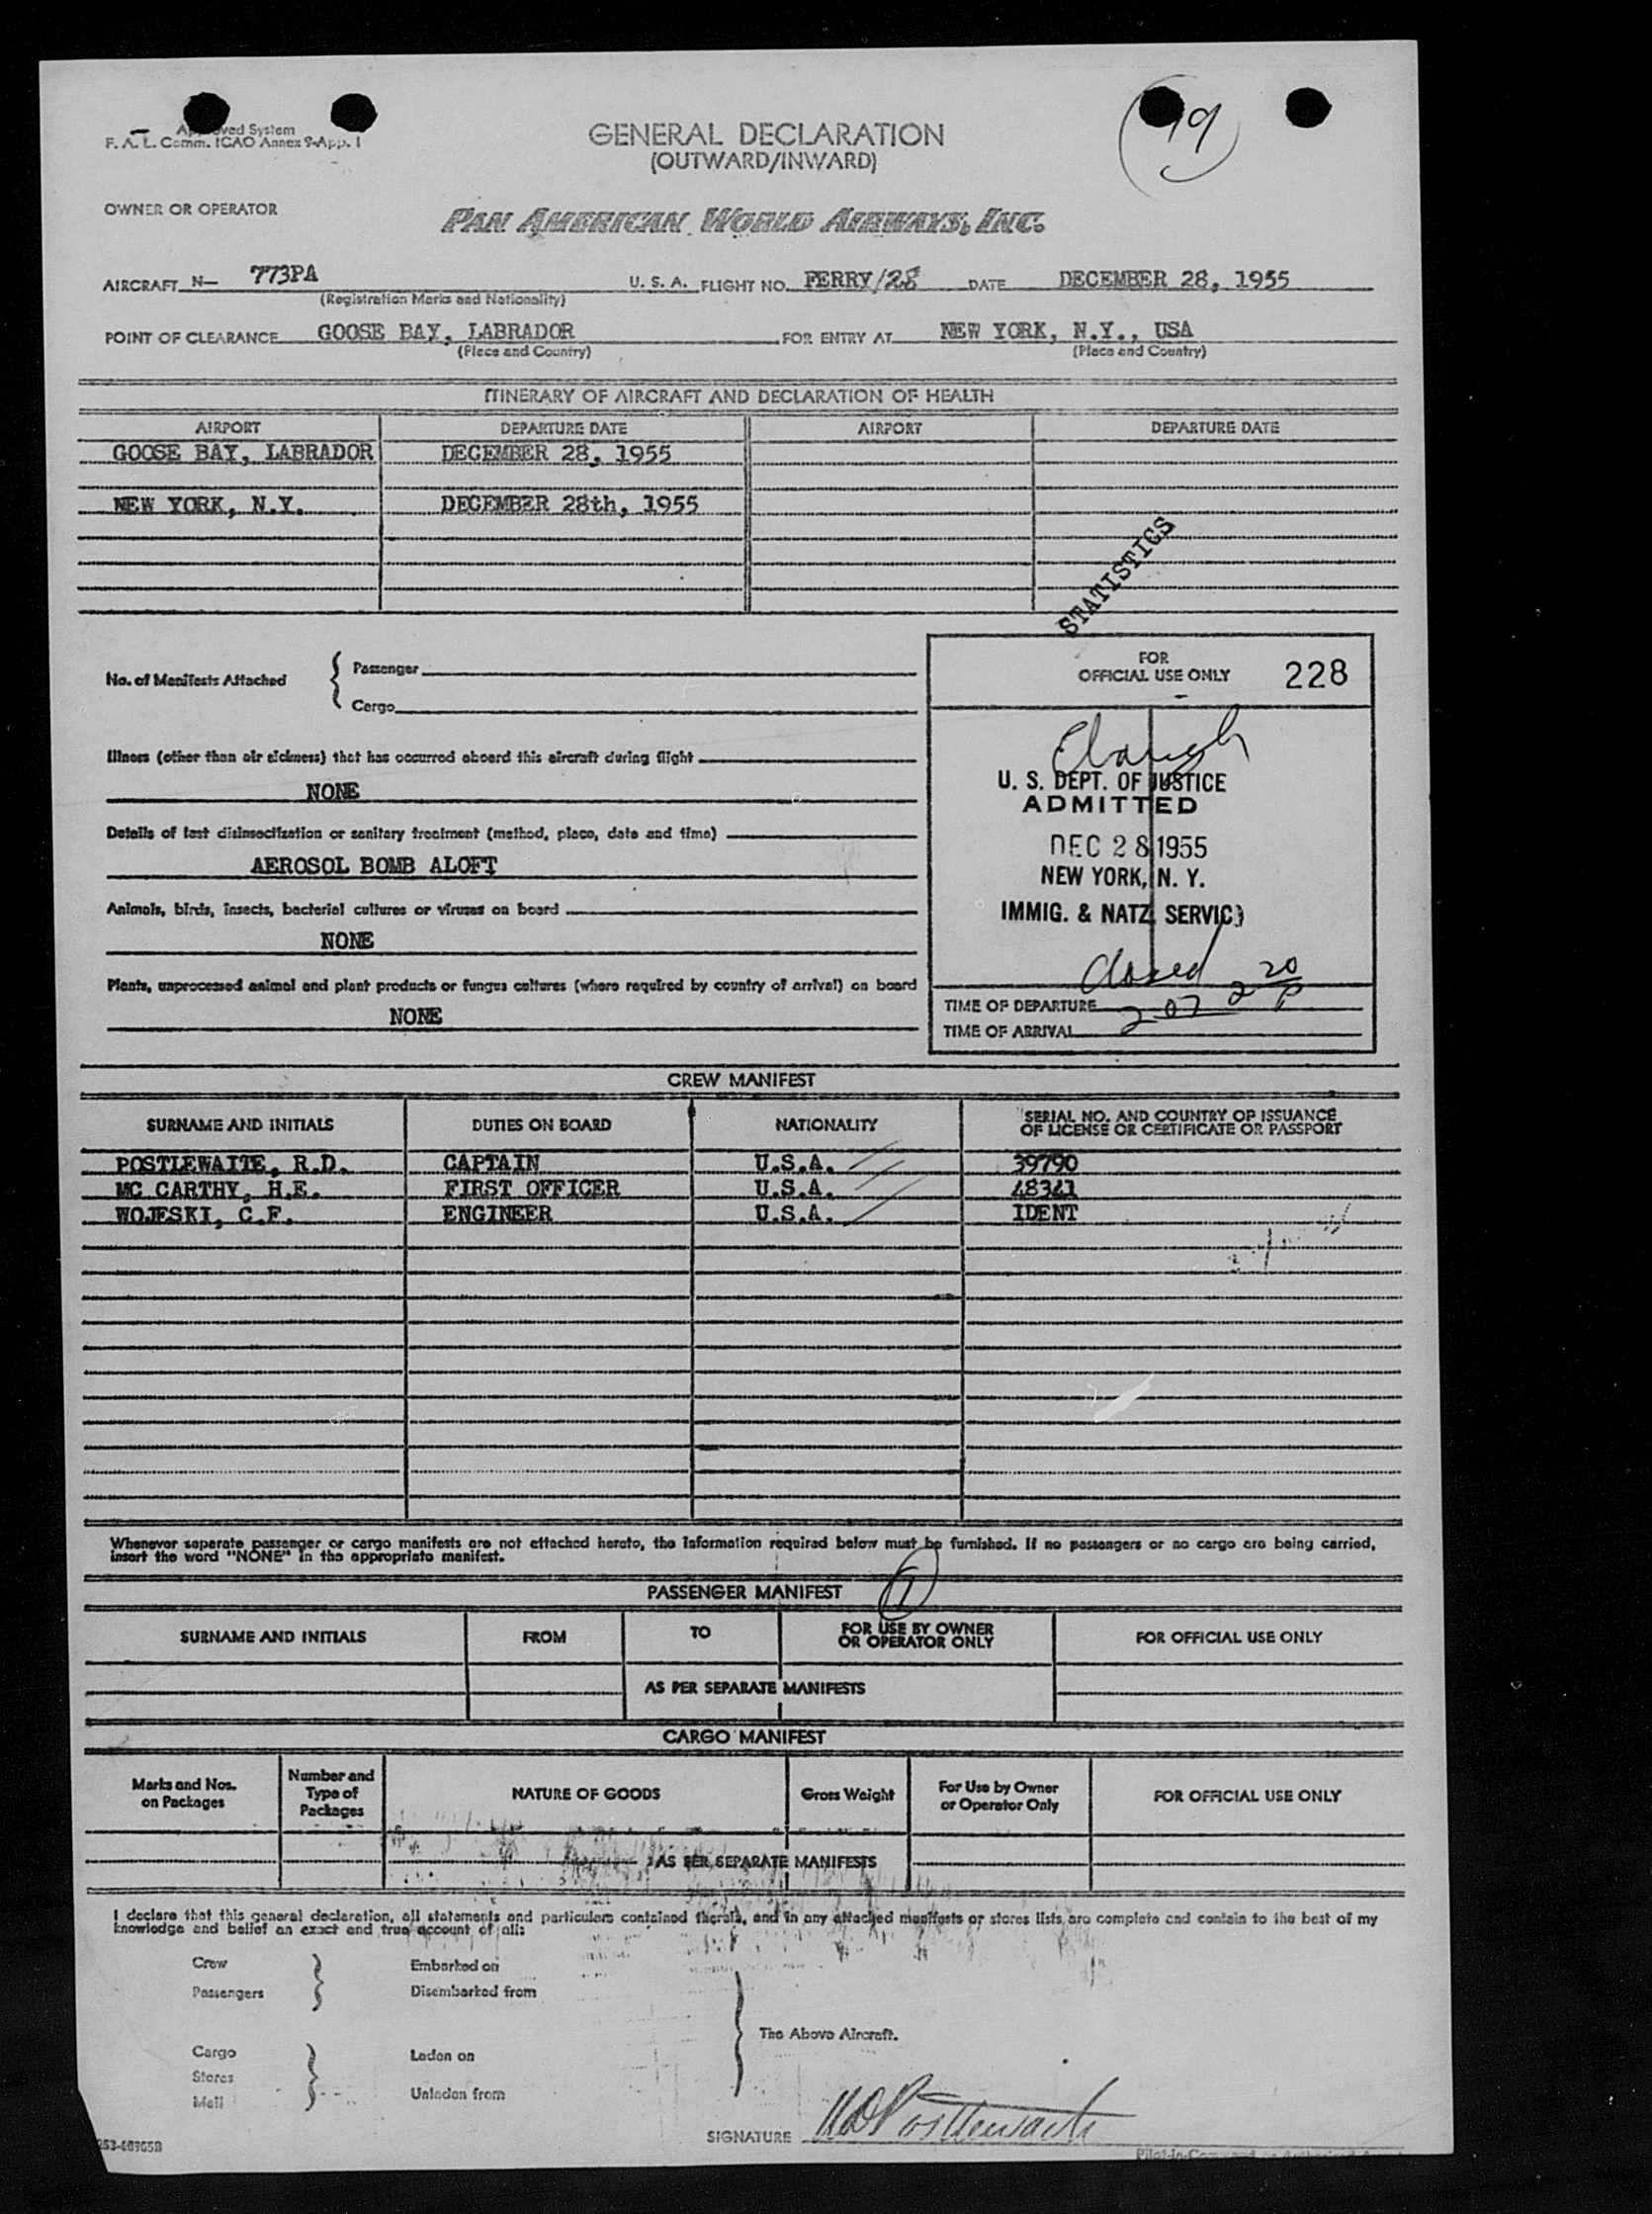 Approved System
F. A. L. Comm. ICAO Annex 9-App. 1
GENERAL DECLARATION
(OUTWARD/INWARD)
19
OWNER OR OPERATOR
PAN AMERICAN WORLD AIRWAYS, INC.
AIRCRAFT N— 773PA U. S. A. FLIGHT NO. FERRY/28 DATE DECEMBER 28, 1955
(Registration Marks and Nationality)
POINT OF CLEARANCE GOOSE BAY, LABRADOR FOR ENTRY AT NEW YORK, N.Y., USA
(Place and Country) (Place and Country)
ITINERARY OF AIRCRAFT AND DECLARATION OF HEALTH
AIRPORT DEPARTURE DATE AIRPORT DEPARTURE DATE
GOOSE BAY, LABRADOR DECEMBER 28, 1955
NEW YORK, N.Y. DECEMBER 28th, 1955
STATISTICS
No. of Manifests Attached { Passenger
Cargo
FOR
OFFICIAL USE ONLY 228
Illness (other than air sickness) that has occurred aboard this aircraft during flight
NONE
Details of last disinsectization or sanitary treatment (method, place, date and time)
AEROSOL BOMB ALOFT
Animals, birds, insects, bacterial cultures or viruses on board
NONE
Plants, unprocessed animal and plant products or fungus cultures (where required by country of arrival) on board
NONE
U. S. DEPT. OF JUSTICE
ADMITTED
DEC 28 1955
NEW YORK, N. Y.
IMMIG. & NATZ. SERVIC
closed 2 20 P
TIME OF DEPARTURE 2 07
TIME OF ARRIVAL
CREW MANIFEST
SURNAME AND INITIALS DUTIES ON BOARD NATIONALITY SERIAL NO. AND COUNTRY OF ISSUANCE
OF LICENSE OR CERTIFICATE OR PASSPORT
POSTLEWAITE, R.D. CAPTAIN U.S.A. 39790
MC CARTHY, H.E. FIRST OFFICER U.S.A. 48341
WOJESKI, C.F. ENGINEER U.S.A. IDENT
Whenever separate passenger or cargo manifests are not attached hereto, the information required below must be furnished. If no passengers or no cargo are being carried,
insert the word "NONE" in the appropriate manifest.
PASSENGER MANIFEST 1
SURNAME AND INITIALS FROM TO FOR USE BY OWNER
OR OPERATOR ONLY FOR OFFICIAL USE ONLY
AS PER SEPARATE MANIFESTS
CARGO MANIFEST
Marks and Nos.
on Packages Number and
Type of
Packages NATURE OF GOODS Gross Weight For Use by Owner
or Operator Only FOR OFFICIAL USE ONLY
AS PER SEPARATE MANIFESTS
I declare that this general declaration, all statements and particulars contained therein, and in any attached manifests or stores lists are complete and contain to the best of my
knowledge and belief an exact and true account of all:
Crew Embarked on
Passengers Disembarked from
The Above Aircraft.
Cargo Laden on
Stores
Mail Unladen from
SIGNATURE RD Postlewaite